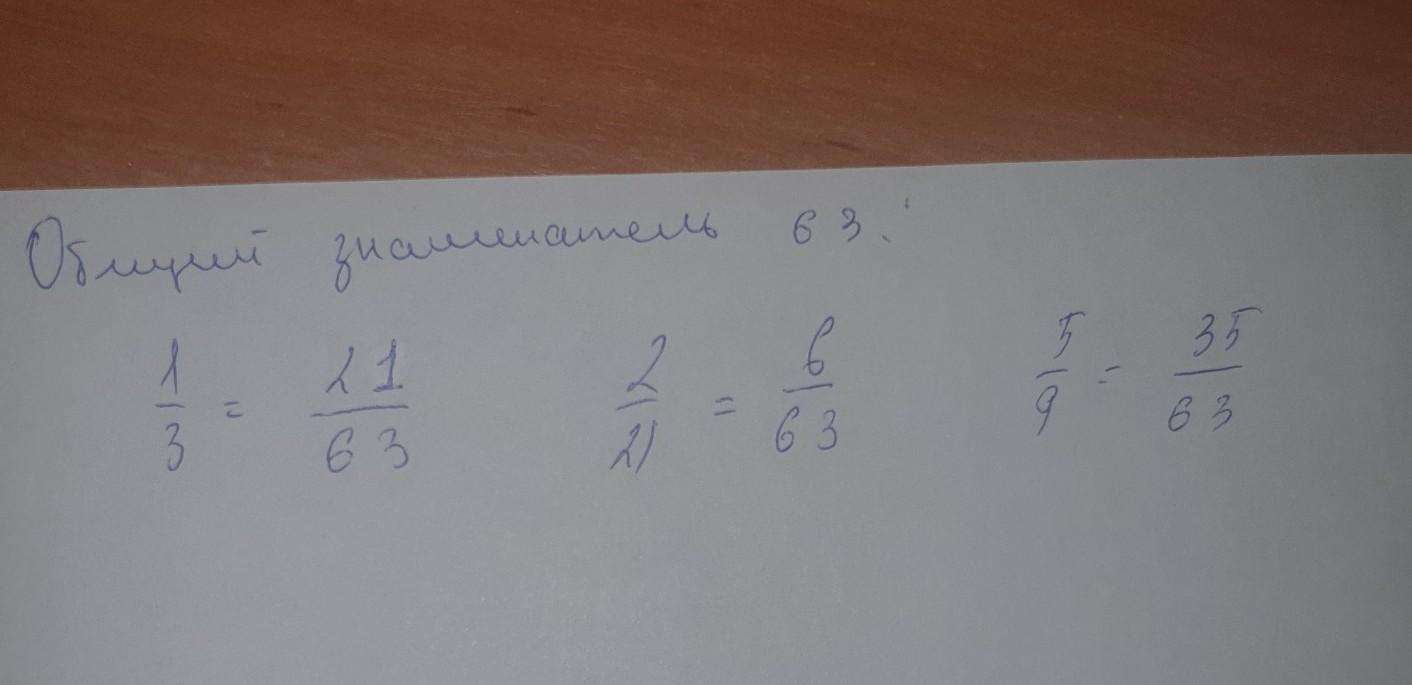 Общий знаменатель 63:
1/3 = 21/63 2/21 = 6/63 5/9 = 35/63